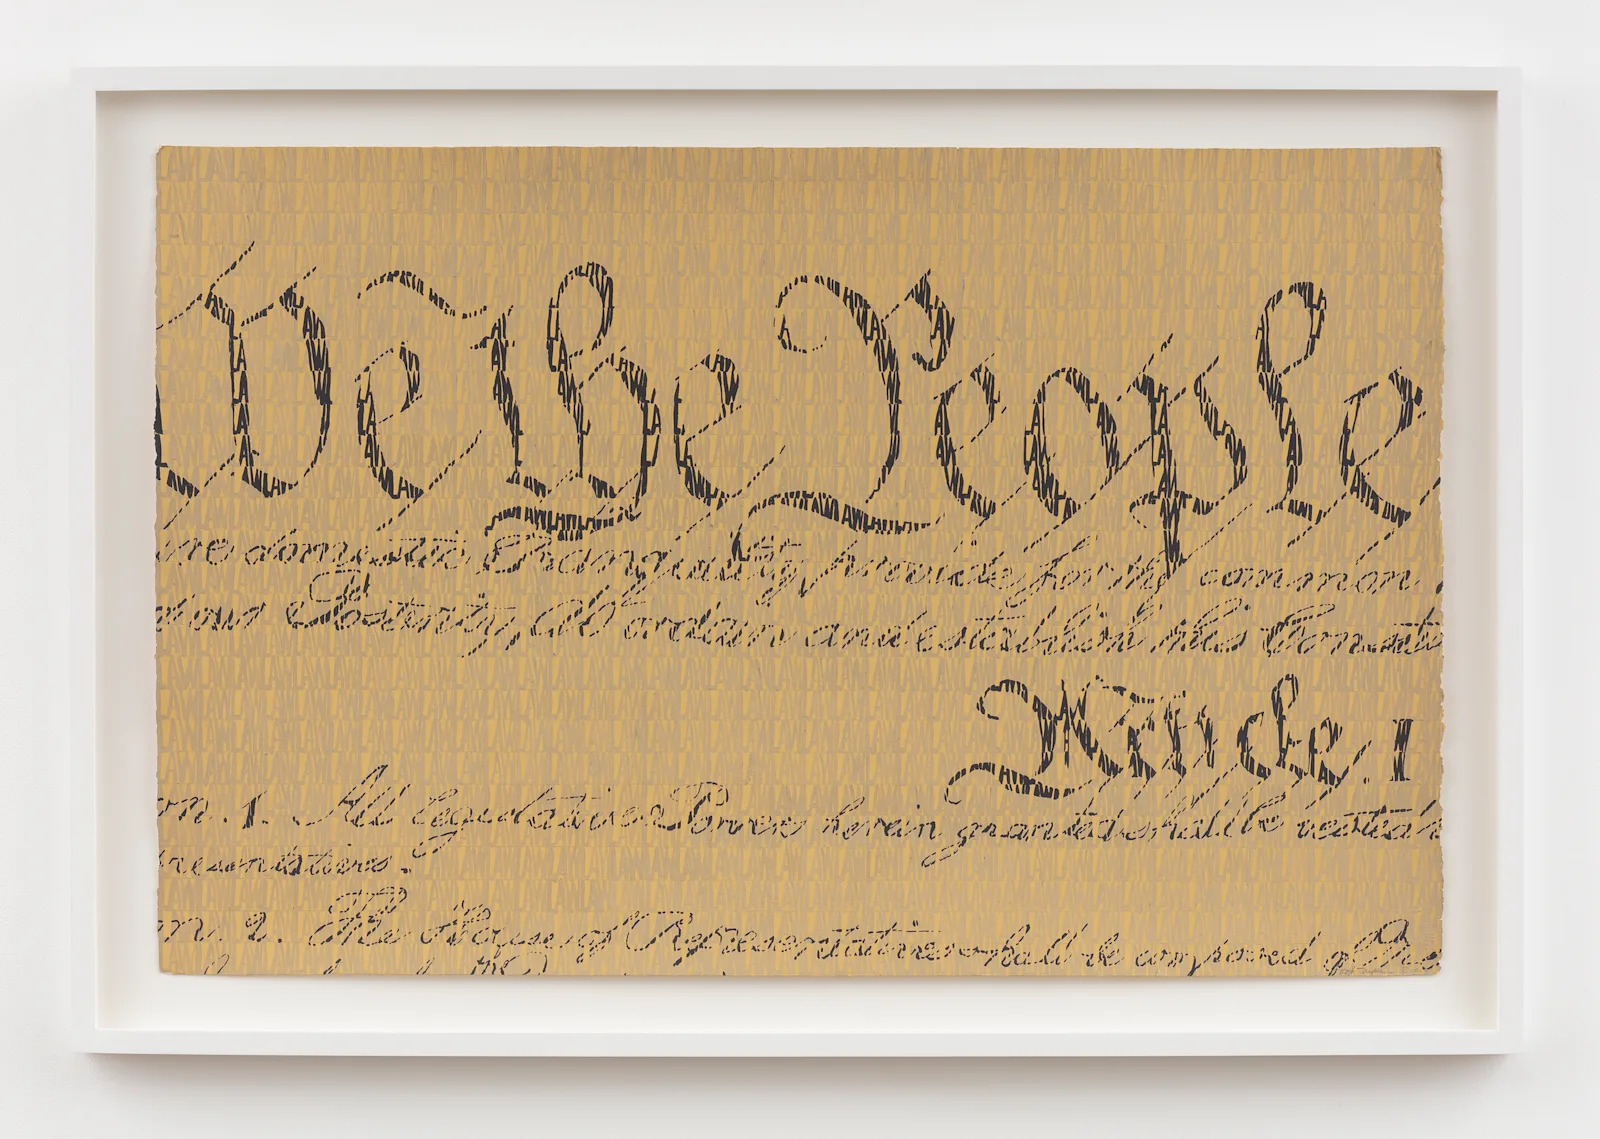 We the People
ure domestic Tranquility, provide for the common
d our Posterity, do ordain and establish this Constitu
Article. I
on. 1. All legislative Powers herein granted shall be vested in
presentatives.
on. 2. The House of Representatives shall be composed of Me